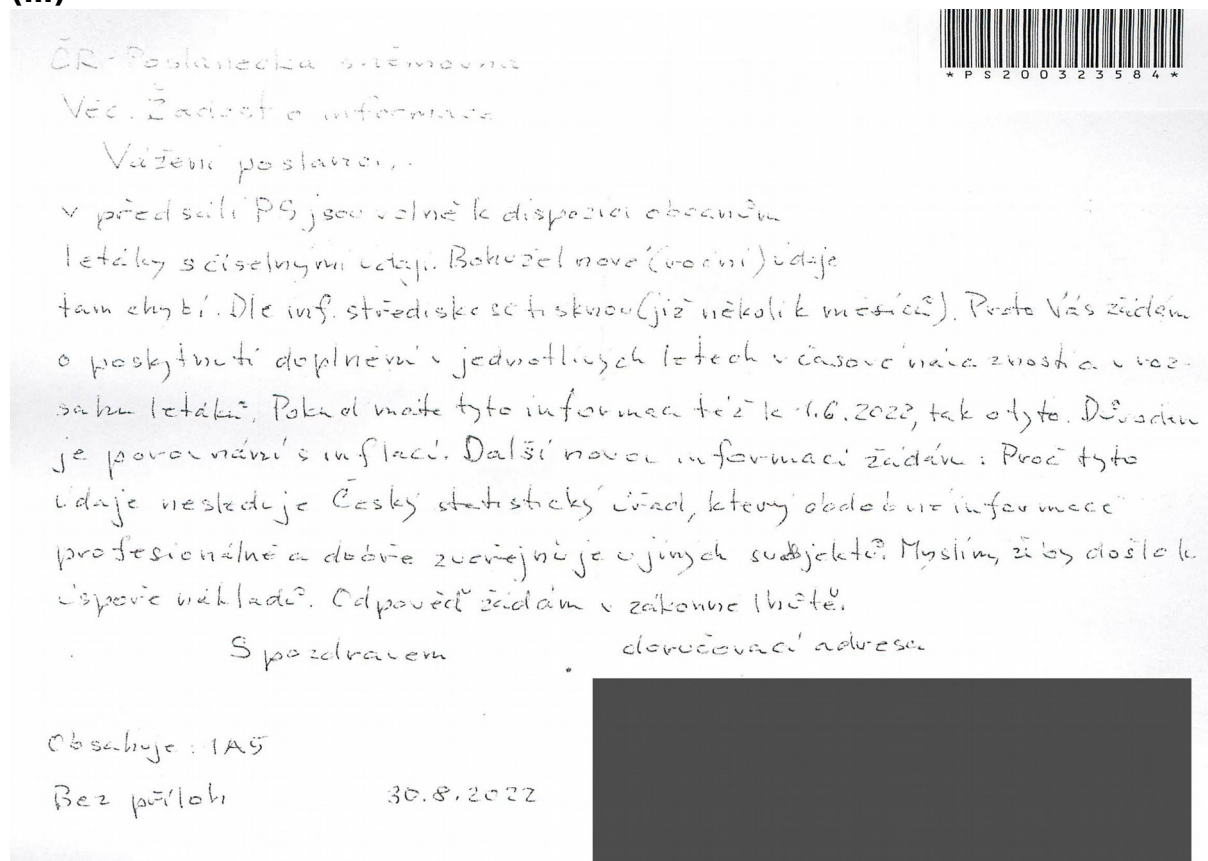 (III)
*PS200323584*
ČR-Poslanecká sněmovna
Věc. Žádost o informace
Vážení poslanci,.
v předsálí PS jsou volně k dispozici občanům
letáky s číselnými údaji. Bohužel nové (roční) údaje
tam chybí. Dle inf. střediska se tisknou (již několik měsíců). Proto Vás žádám
o poskytnutí doplnění v jednotlivých letech v časové návaznosti a v roz-
sahu letáků. Pokud máte tyto informace též k 1.6.2022, tak o tyto. Důvodem
je porovnání s inflací. Další novou informaci žádám: Proč tyto
údaje nesleduje Český statistický úřad, který obdobné informace
profesionálně a dobře zveřejňuje u jiných subjektů. Myslím, že by došlo k
úspoře nákladů. Odpověď žádám v zákonné lhůtě.
S pozdravem
doručovací adresa
Obsahuje: 1A5
Bez příloh
30.8.2022